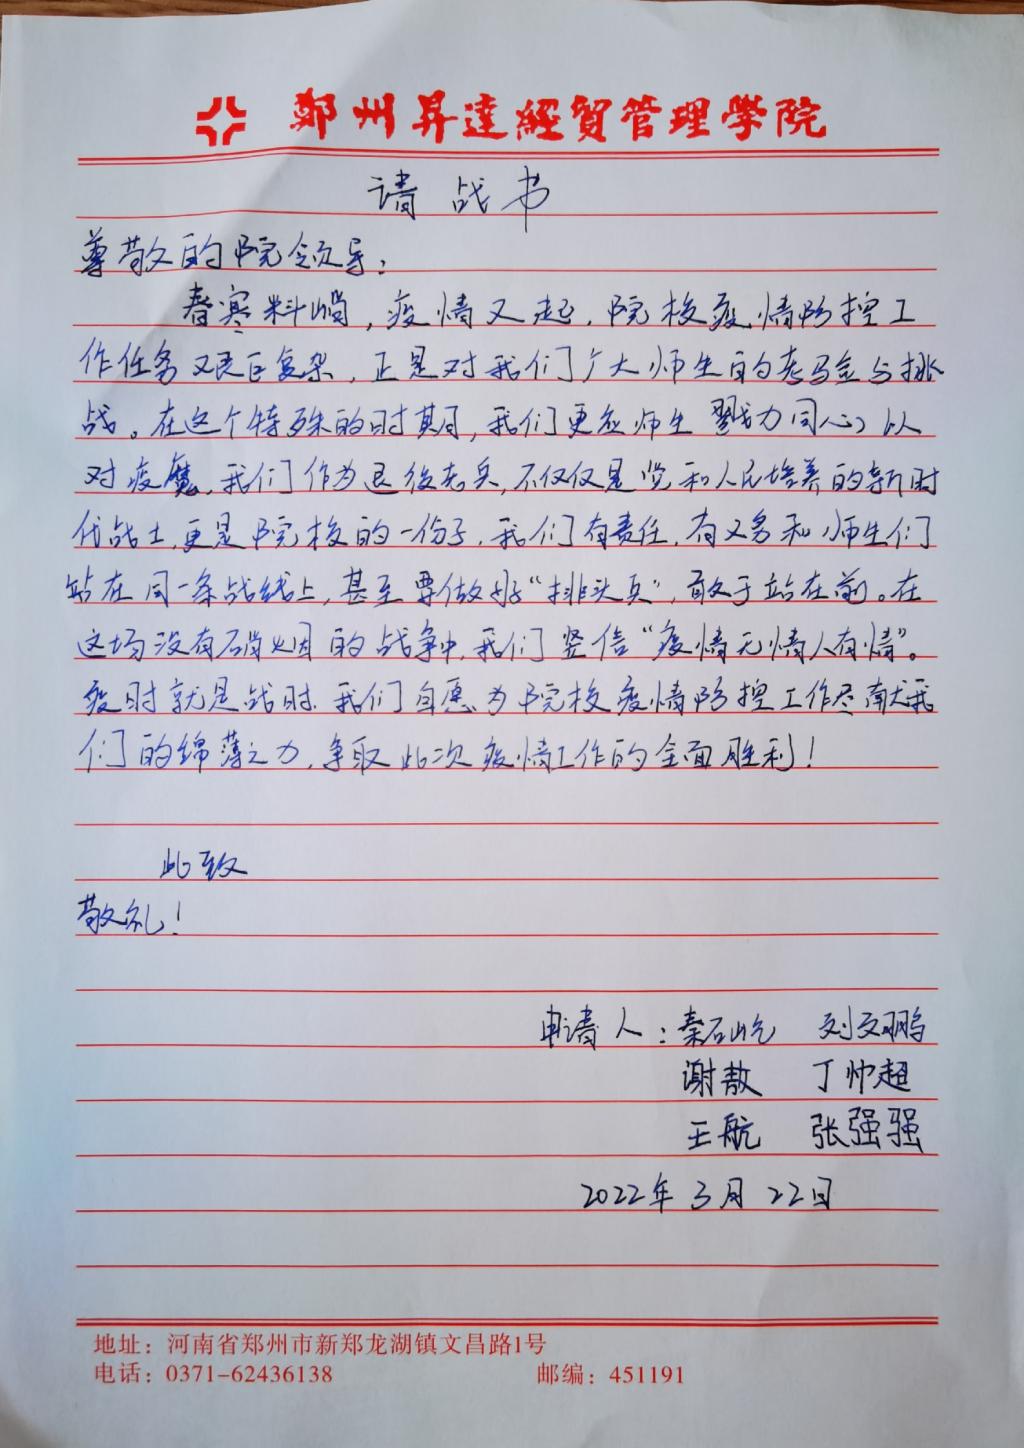 鄭州昇達經貿管理學院
请战书
尊敬的院领导：
春寒料峭，疫情又起，院校疫情防控工
作任务艰巨复杂，正是对我们广大师生的考验与挑
战。在这个特殊的时期，我们更应师生戮力同心，以
对疫魔，我们作为退役老兵，不仅仅是党和人民培养的新时
代战士，更是院校的一份子，我们有责任，有义务和师生们
站在同一条战线上，甚至要做好“排头兵”，敢于站在前。在
这场没有硝烟的战争中，我们坚信“疫情无情人有情”。
疫时就是战时，我们自愿为院校疫情防控工作尽献我
们的绵薄之力，争取此次疫情工作的全面胜利！
此致
敬礼！
申请人：秦石屹 刘文鹏
谢敖 丁帅超
王航 张强强
2022年3月22日
地址：河南省郑州市新郑龙湖镇文昌路1号
电话：0371-62436138 邮编：451191